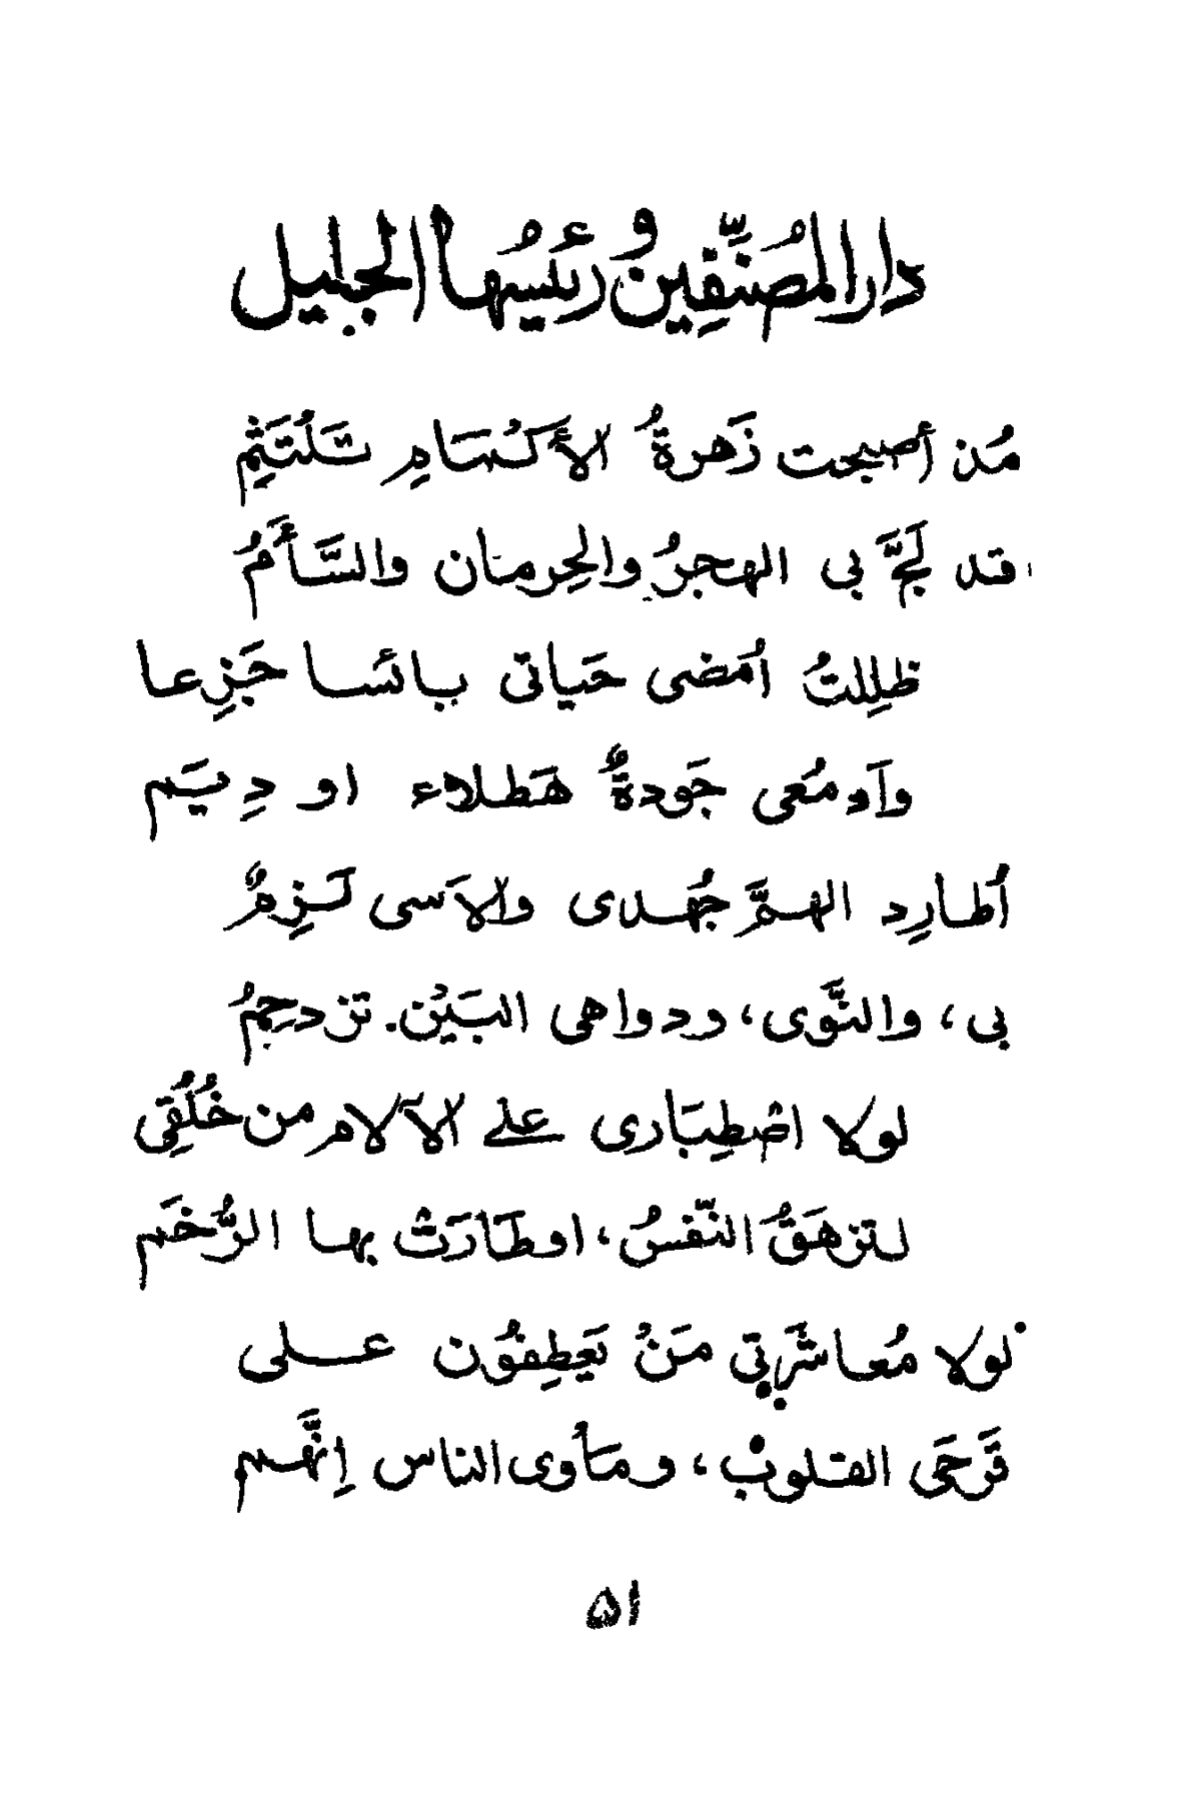 دار المُصَنِّفِين و رئيسُها الجليل
مُن أصبحت زَهرةُ الأكمَامِ تَلتَثِمُ
قد لَجَّ بى الهجرُ والحِرمان والسَّأَمُ
ظلِلتُ اُمَضى حَياتى بائسا جَزِعا
وآدمُعى جَودةٌ هَطلاء او دِيَم
اُطارِد الهمَّ جُهدى والاَسى لَزِمٌ
بى، والنَّوى، ودواهى البَيْن. تزدحِمُ
لولا اصْطِبَارى على الآلام من خُلُقِى
لتزهَقُ النّفسُ، او طَارَتْ بها الرُّخَم
لولا مُعاشَرتِي مَنْ يَعطِفُون على
قَرحَى القلوبْ، ومأوى الناس اِنَّهم
۵۱